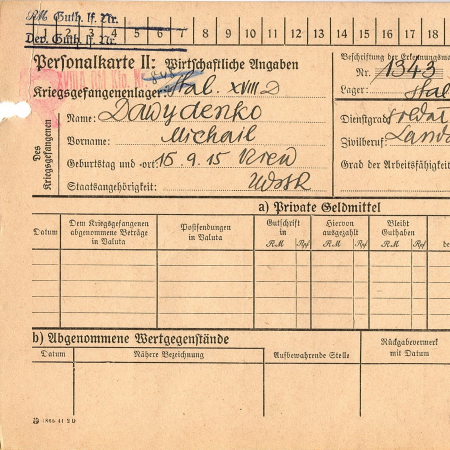 RM Guth. lf. Nr.
1 2 3 4 5 6 7 8 9 10 11 12 13 14 15 16 17 18
Dev. Guth. lf. Nr.
Personalkarte II: Wirtschaftliche Angaben
Beschriftung der Erkennungsm
Nr. 1343
Kriegsgefangenenlager: Stal. XVIII D
Lager: Stal
Des Kriegsgefangenen
Name: Dawydenko
Dienstgrad: soldat
Vorname: Michail
Zivilberuf: Landa
Geburtstag und -ort: 16. 9. 15 Kiew
Grad der Arbeitsfähigkeit
Staatsangehörigkeit: UdSSR
a) Private Geldmittel
Datum
Dem Kriegsgefangenen abgenommene Beträge in Valuta
Postsendungen in Valuta
Gutschrift in
RM Rpf
Hiervon ausgezahlt
RM Rpf
Bleibt Guthaben
RM Rpf
de
b) Abgenommene Wertgegenstände
Datum
Nähere Bezeichnung
Aufbewahrende Stelle
Rückgabevermerk mit Datum